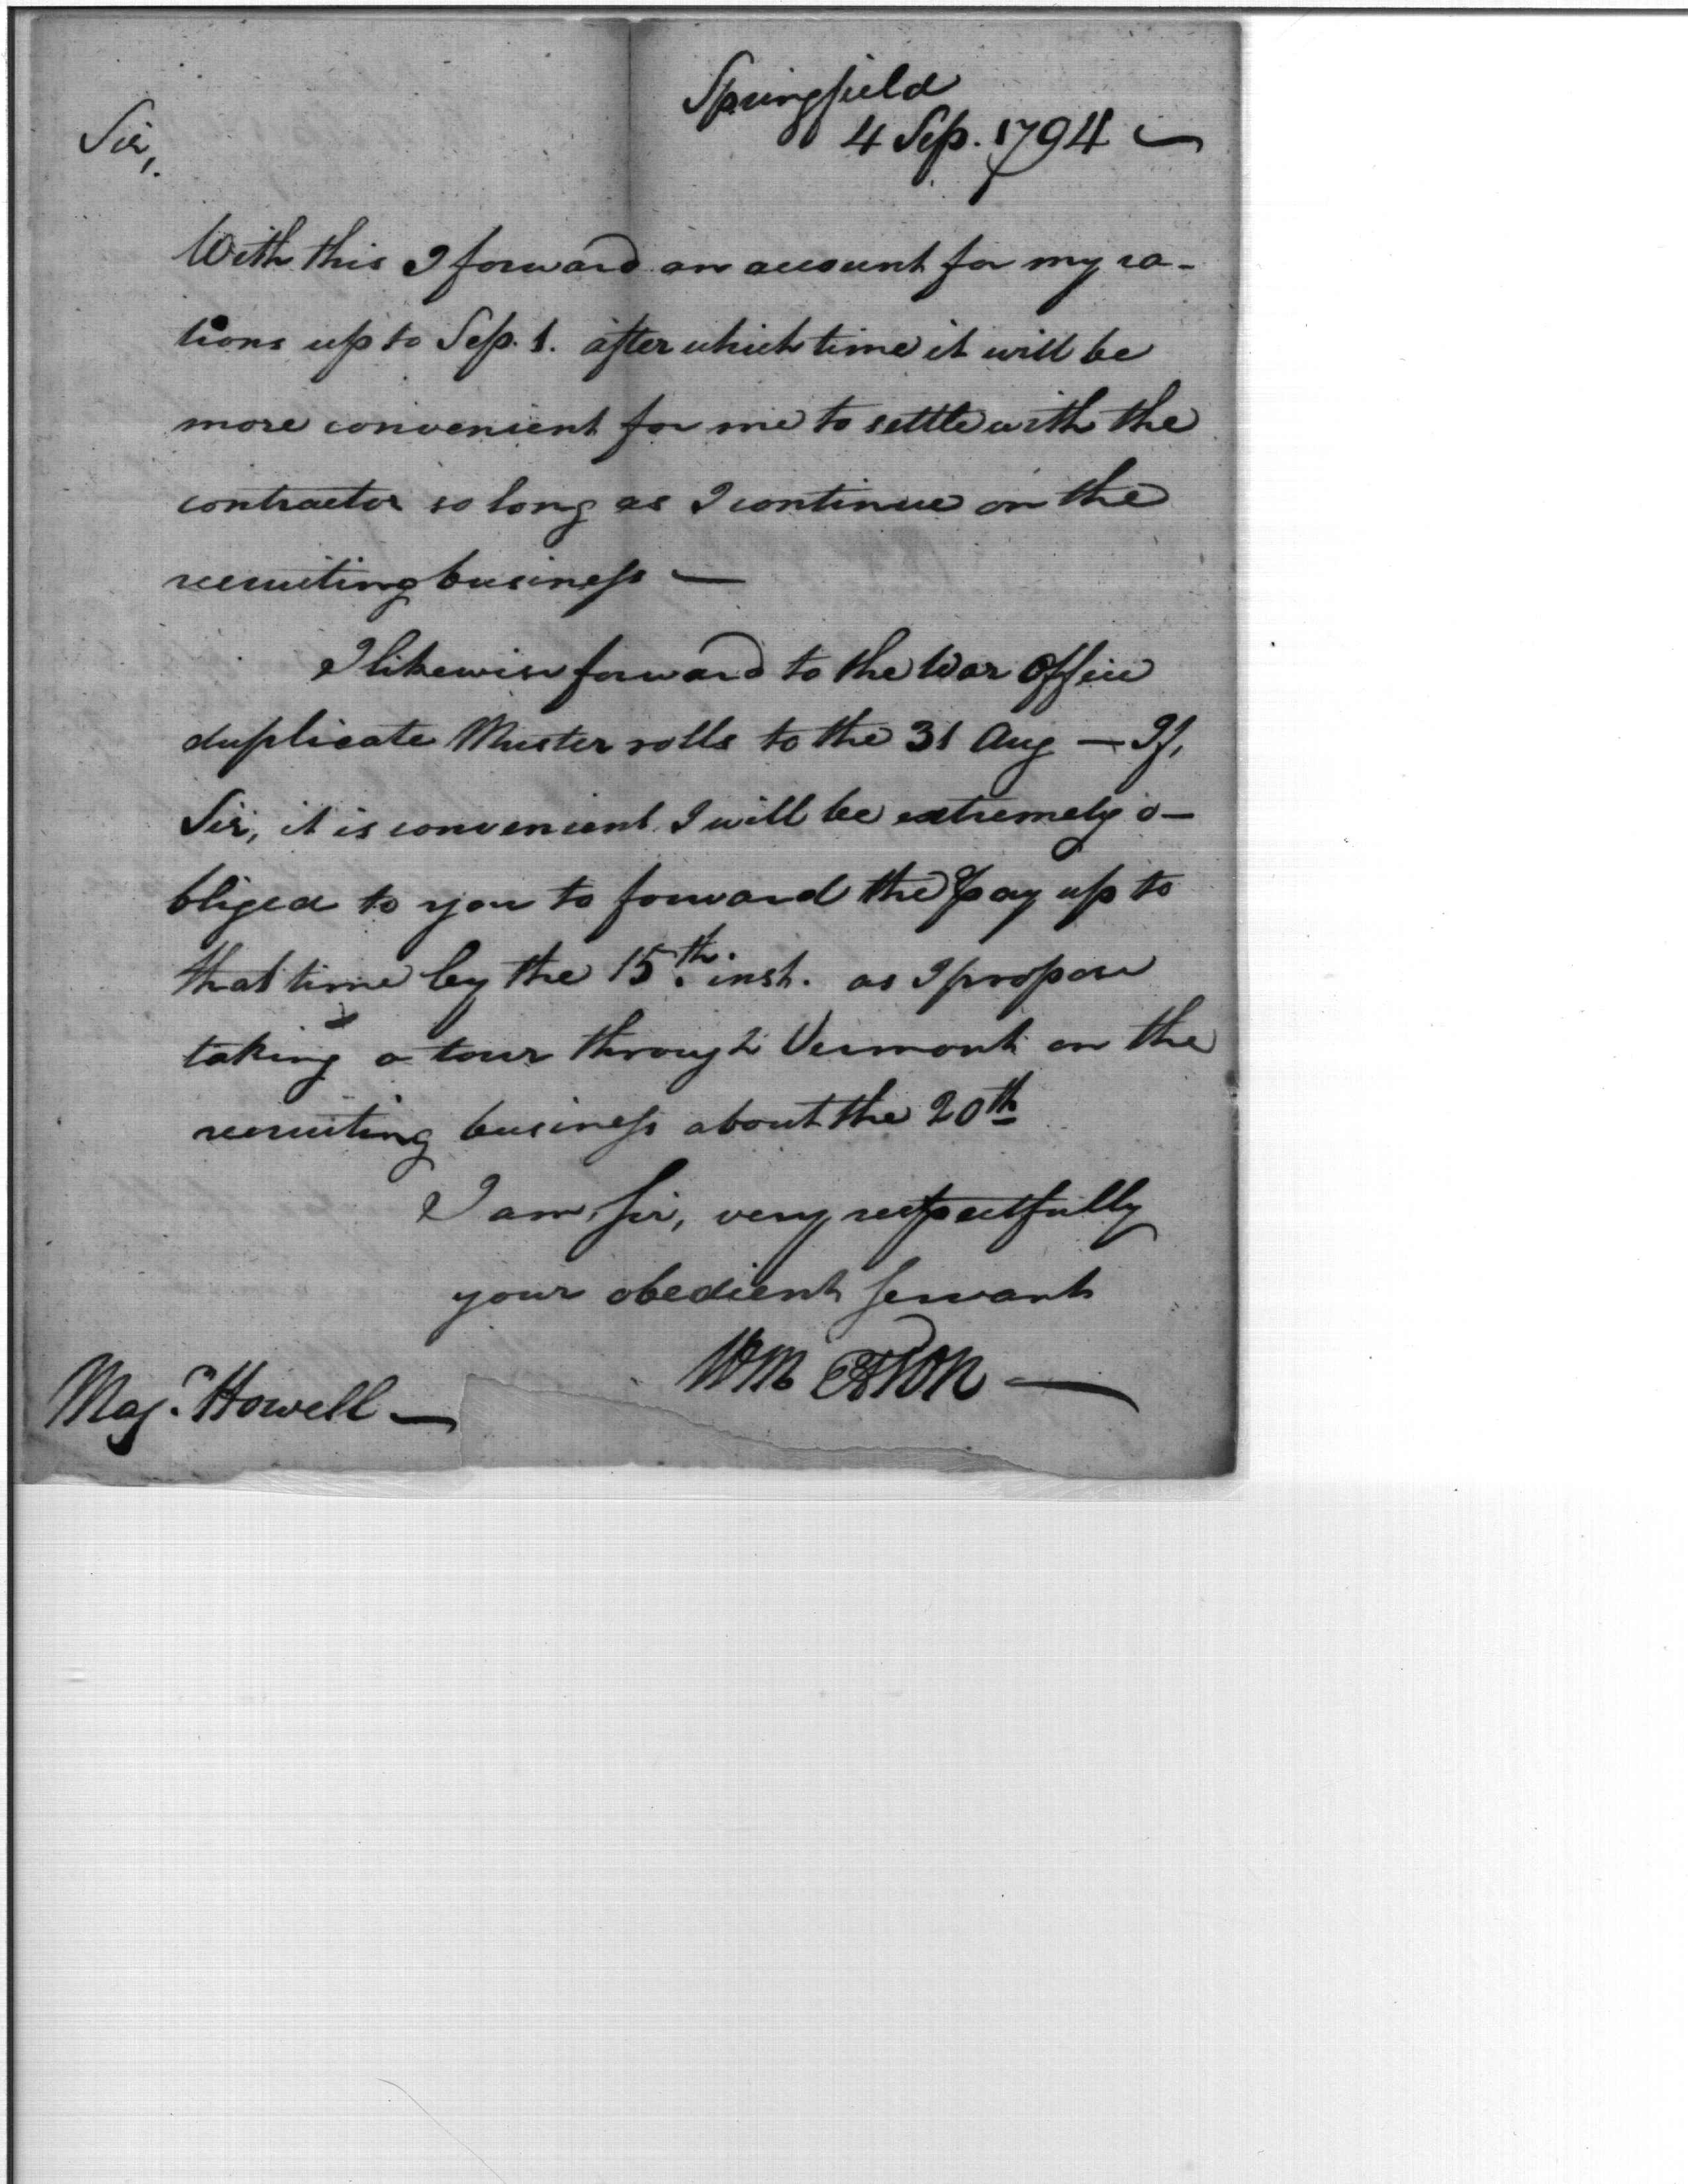 Springfield
4 Sep. 1794 —
Sir,
With this I forward an account for my ra-
tions up to Sep. 1. after which time it will be
more convenient for me to settle with the
contractor so long as I continue on the
recruiting business —
I likewise forward to the War Office
duplicate Muster rolls to the 31 Aug — If,
Sir, it is convenient I will be extremely o-
bliged to you to forward the pay up to
that time by the 15th. inst. as I propose
taking a tour through Vermont on the
recruiting business about the 20th
I am, Sir, very respectfully
your obedient servant
Wm
Majr. Howell —